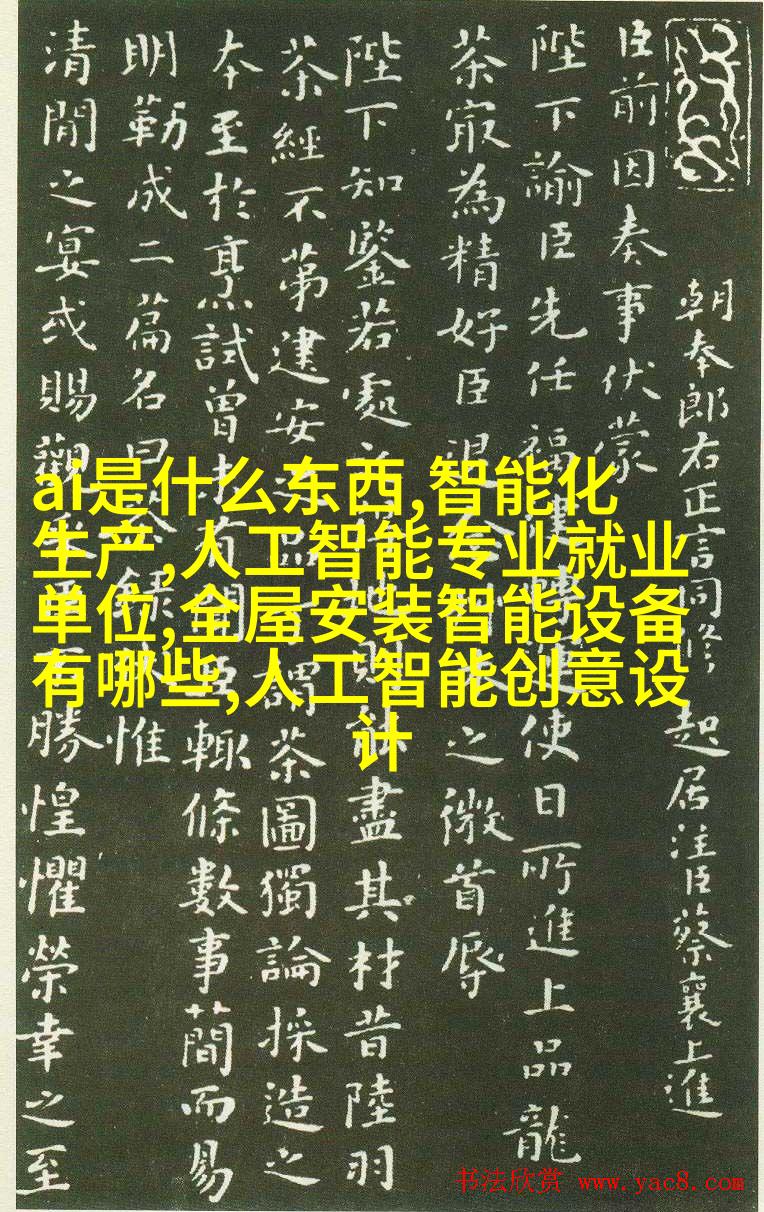 朝奉郎右正言同修起居注臣蔡襄上進
臣前因奏事伏蒙
陛下諭臣先任福建轉運使日所進上品龍
茶㝡為精好臣退之微首辱
陛下知鑒若處地則能盡其材昔陸羽
茶經不第建安品謂茶圖獨論採造之
本至於烹試曾未有聞臣輒條數事簡而易
明勒成二篇名曰茶錄惟
清閒之宴或賜觀臣不勝惶懼榮幸之至
ai是什么东西,智能化
生产,人工智能专业就业
单位,全屋安装智能设备
有哪些,人工智能创意设
计
书法欣赏 www.yac8.com